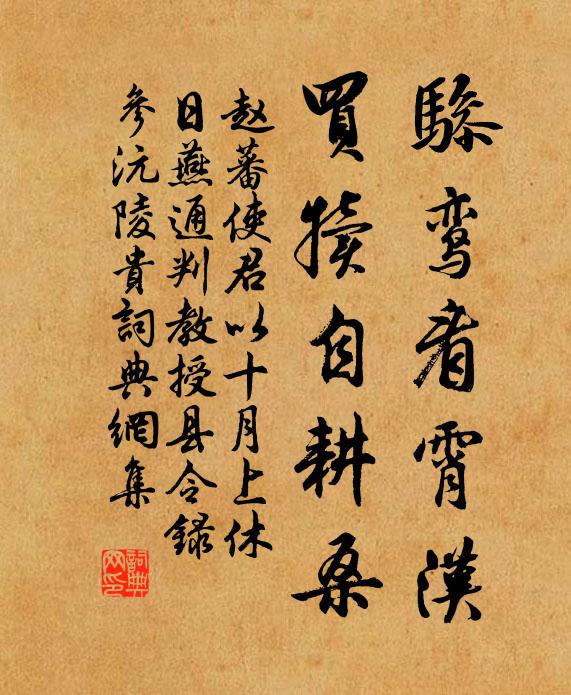 驂鸾看霄漢
買犢自耕桑
赵蕃使君以十月上休
日燕通判教授县令録
參沅陵貴詞典網集
詞典网印